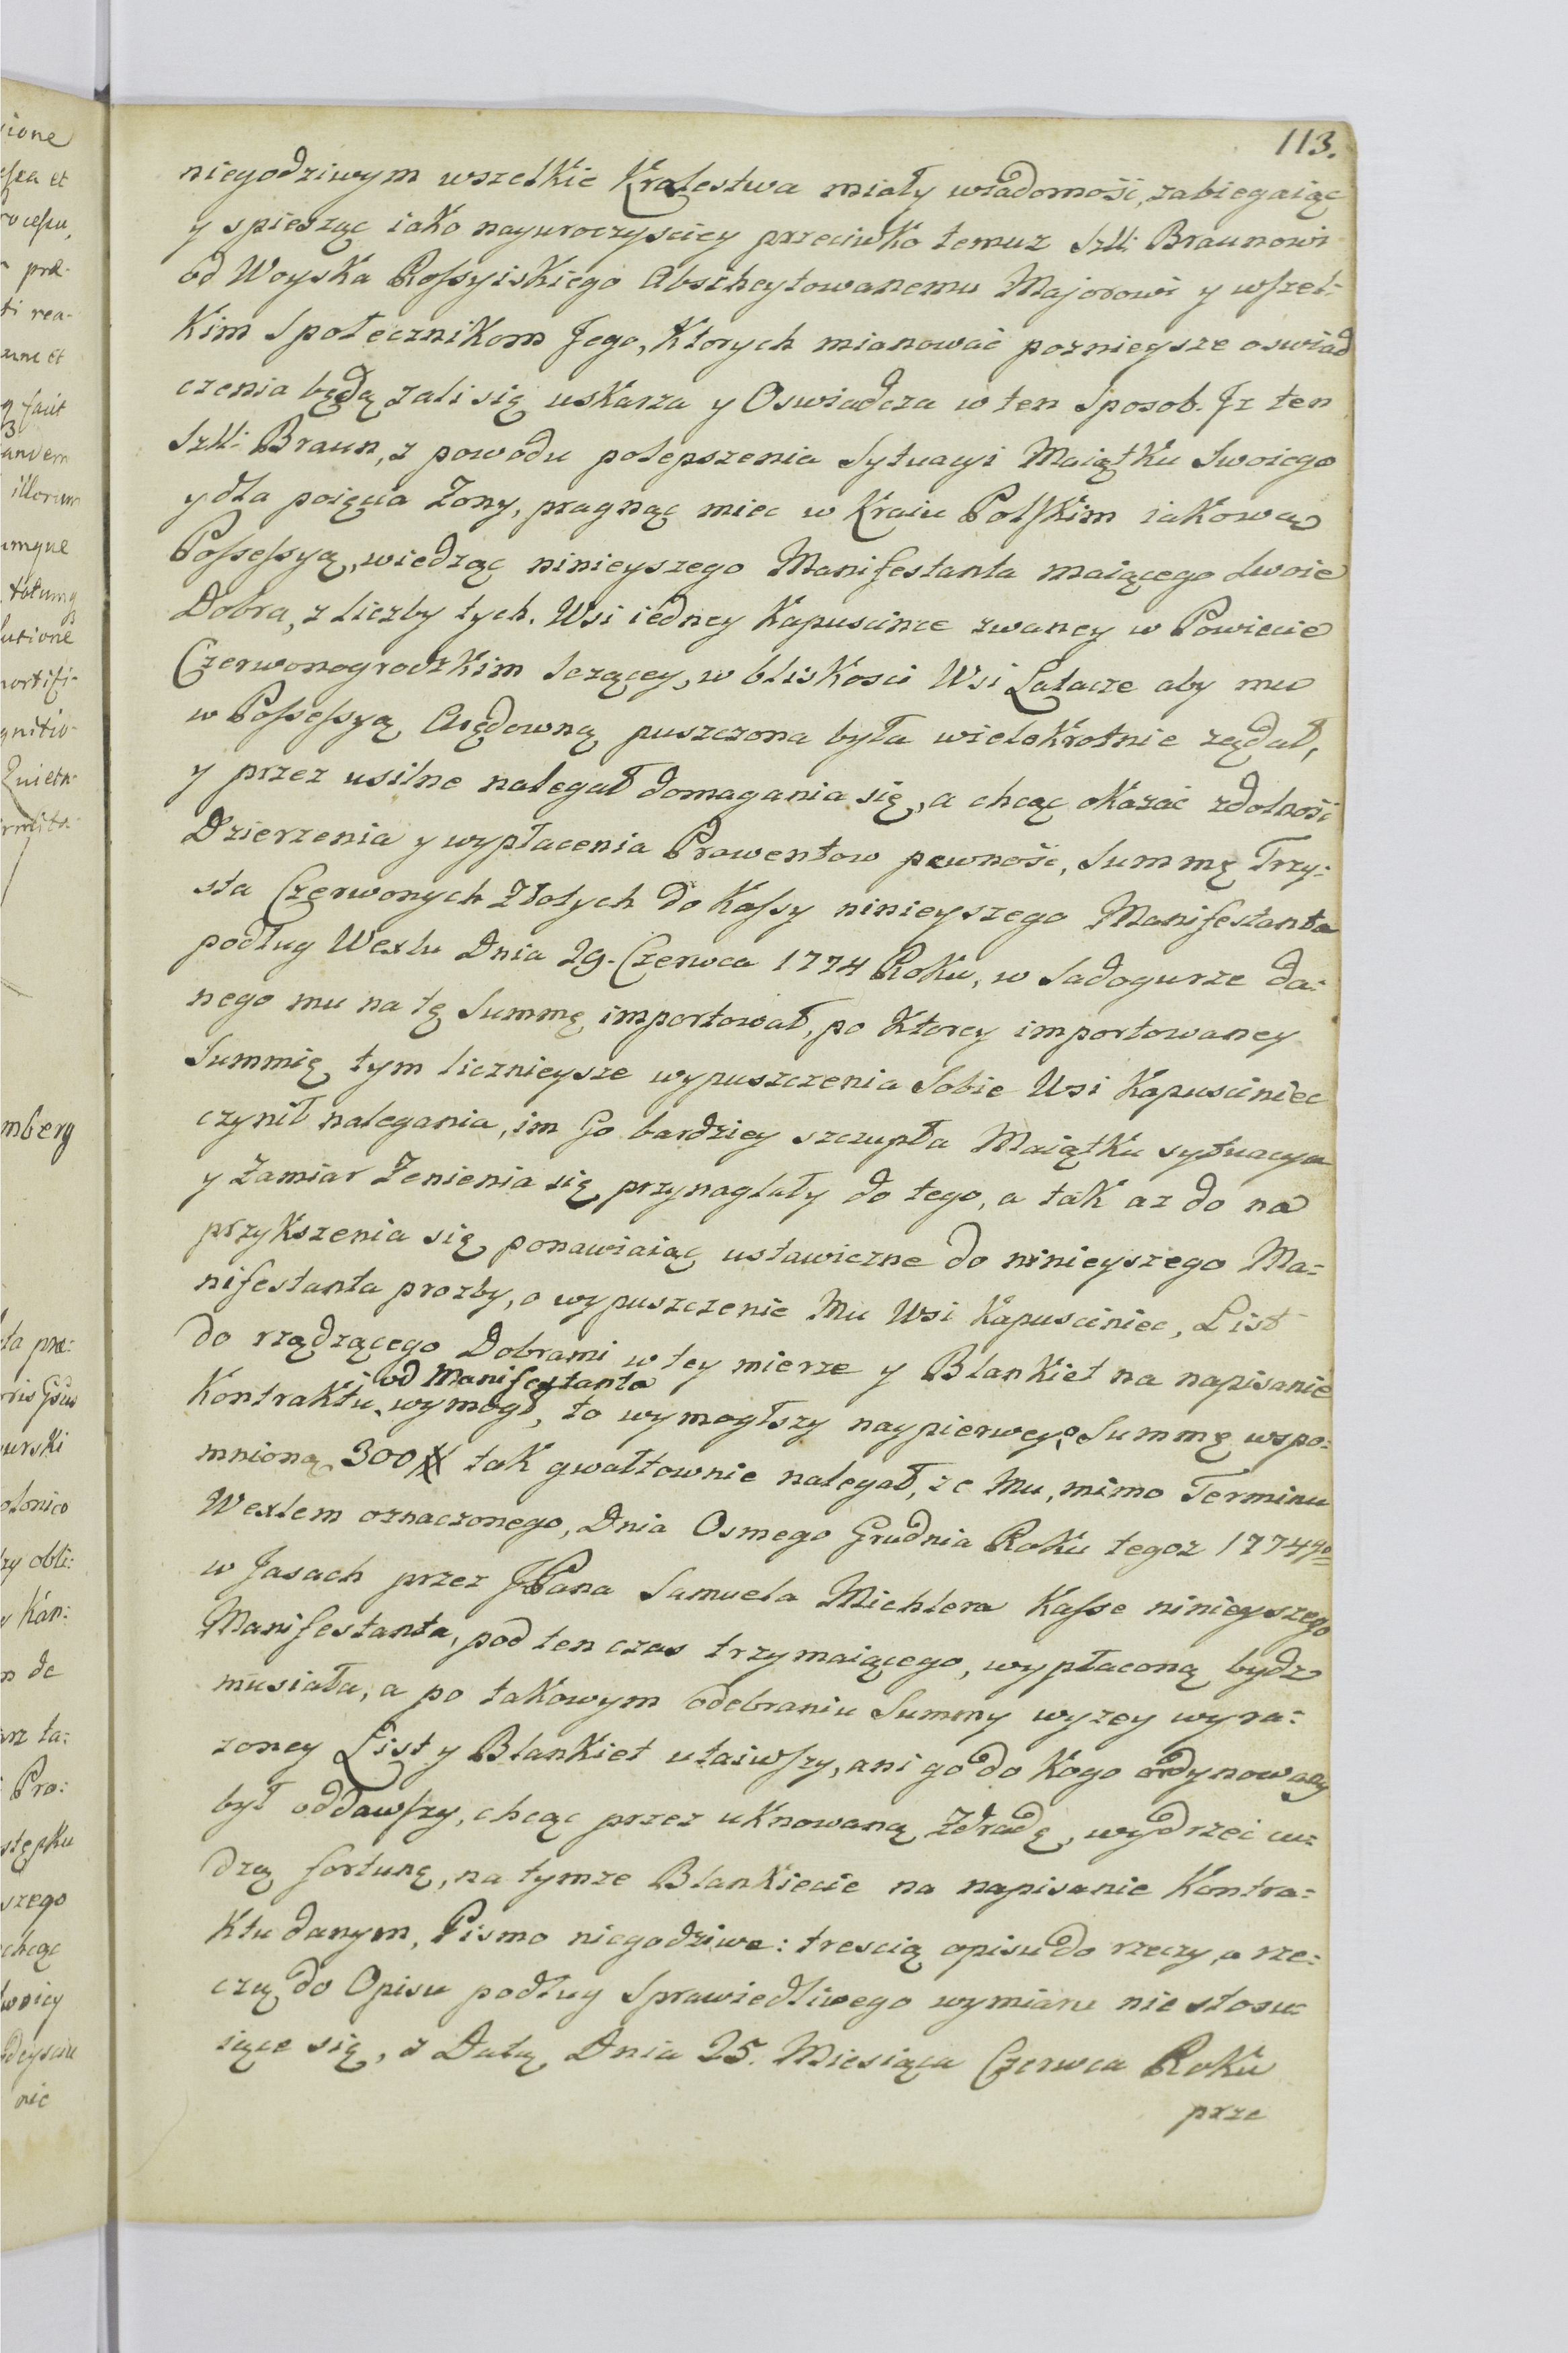 113.
niegodziwym wszelkie Krolestwa miały wiadomość, zabiegaiąc
y spiesząc iako nayuroczyściey przeciwko temuz Szll: Braunowi
od Woyska Rossyiskiego Abscheytowanemu Majorowi y wszel:
Kim Społecznikom Jego, Ktorych mianować poznieysze oswiad
czenia będą zali się uskarza y Oswiadcza w ten Sposob. Jz ten
Szll: Braun, z powodu polepszenia Sytuacyi Maiątku Swoiego
y dla poięcia Zony, pragnąc miec w Kraiu Polskim iakową
Possessyą, wiedząc ninieyszego Manifestanta maiącego Swoie
Dobra, z liczby tych. Wsi iedney Kapuscince zwaney w Powiecie
Czerwonogrodzkim Lezącey, w bliskosci Wsi Latacze aby mu
w Possessyą Arędowną puszczona była wielokrotnie ządał,
y przez usilne nalegał domagania się, a chcąc okazać zdolność
Dzierzenia y wypłacenia Prowentow pewność, Summę Trzy:
sta Czerwonych Złotych do Kassy ninieyszego Manifestanta
podług Wexlu Dnia 29. Czerwca 1774 Roku, w Sadogurze da:
nego mu na tę Summę importował, po Ktorey importowaney
Summię tym licznieysze wypuszczenia Sobie Wsi Kapusciniec
czynił nalegania, im Go bardziey szczupła Maiątku sytuacya
y Zamiar Zenienia się przynaglały do tego, a tak az do na
przykszenia się ponawiaiąc ustawiczne do ninieyszego Ma:
nifestanta prozby, o wypuszczenie Mu Wsi Kapusciniec, List
do rządzącego Dobrami w tey mierze y Blankiet na napisanie
od Manifestanta
Kontraktu wymogł, to wymogłszy naypierwey, Summę wspo:
mnioną 300 # tak gwałtownie nalegał, ze Mu, mimo Terminu
Wexlem oznaczonego, Dnia Osmego Grudnia Roku tegoz 1774go
w Jasach przez JPana Samuela Michlera Kasse ninieyszego
Manifestanta, pod ten czas trzymaiącego, wypłaconą bydz
musiała, a po takowym odebraniu Summy wyzey wyra:
zoney List y Blankiet utaiwszy, ani go do Kogo ordynowany
był oddawszy, chcąc przez uknowaną Zdradę, wydrzeć cu:
dzą fortunę, na tymze Blankiecie na napisanie Kontra:
Ktu danym, Pismo niegodziwe: trescią opisu do rzeczy, a rze:
czą do Opisu podług Sprawiedliwego wymiaru nie stosu:
iące się, z Datą Dnia 25. Miesiąca Czerwca Roku
prze